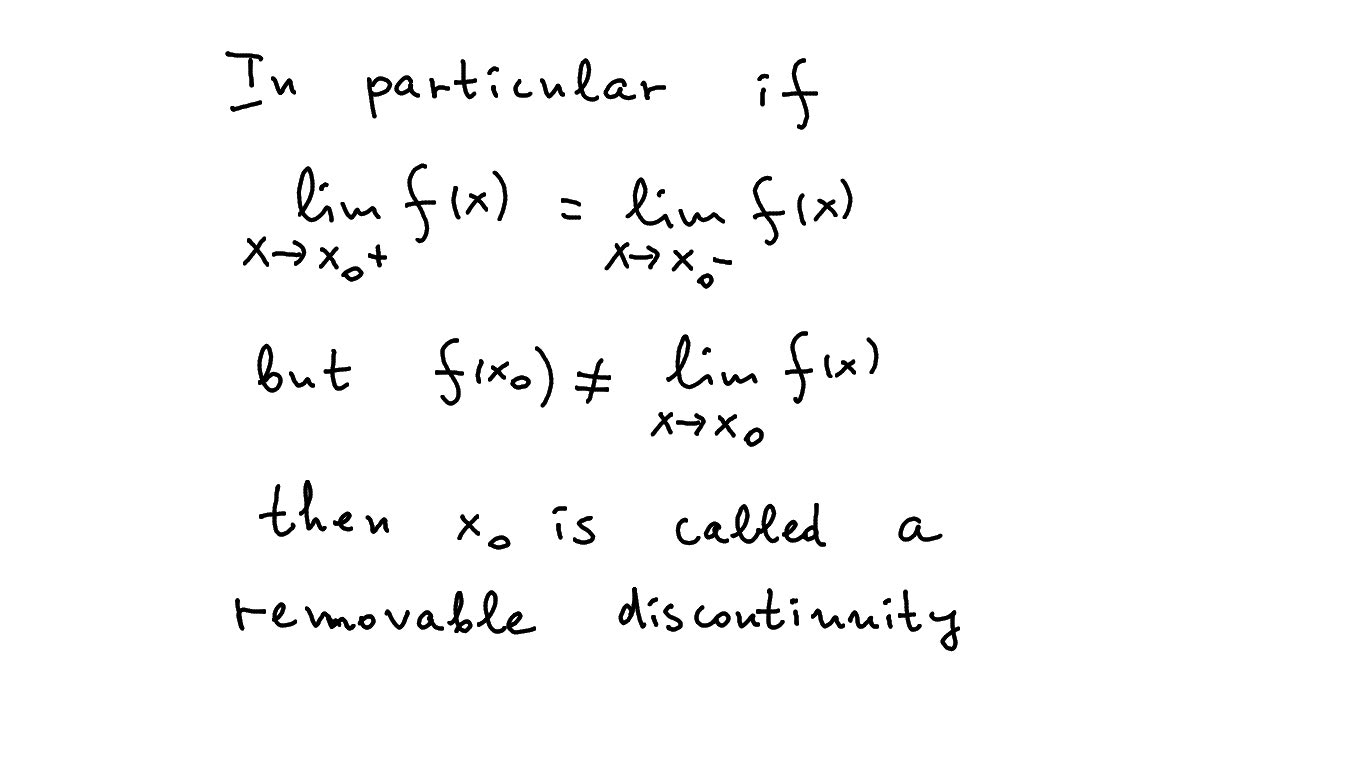 In particular if
lim f(x) = lim f(x)
x→x₀+ x→x₀-
but f(x₀) ≠ lim f(x)
x→x₀
then x₀ is called a
removable discontinuity